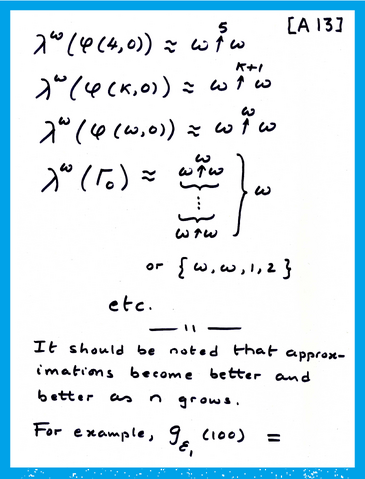 [A 13]
λ^ω(φ(4,0)) ≈ ω ↑^5 ω
λ^ω(φ(κ,0)) ≈ ω ↑^{κ+1} ω
λ^ω(φ(ω,0)) ≈ ω ↑^ω ω
λ^ω(Γ₀) ≈ ω ↑^ω ω
⋮
ω ↑ ω
} ω
or {ω, ω, 1, 2}
etc.
— " —
It should be noted that approx-
imations become better and
better as n grows.
For example, g_{ε₁}(100) =